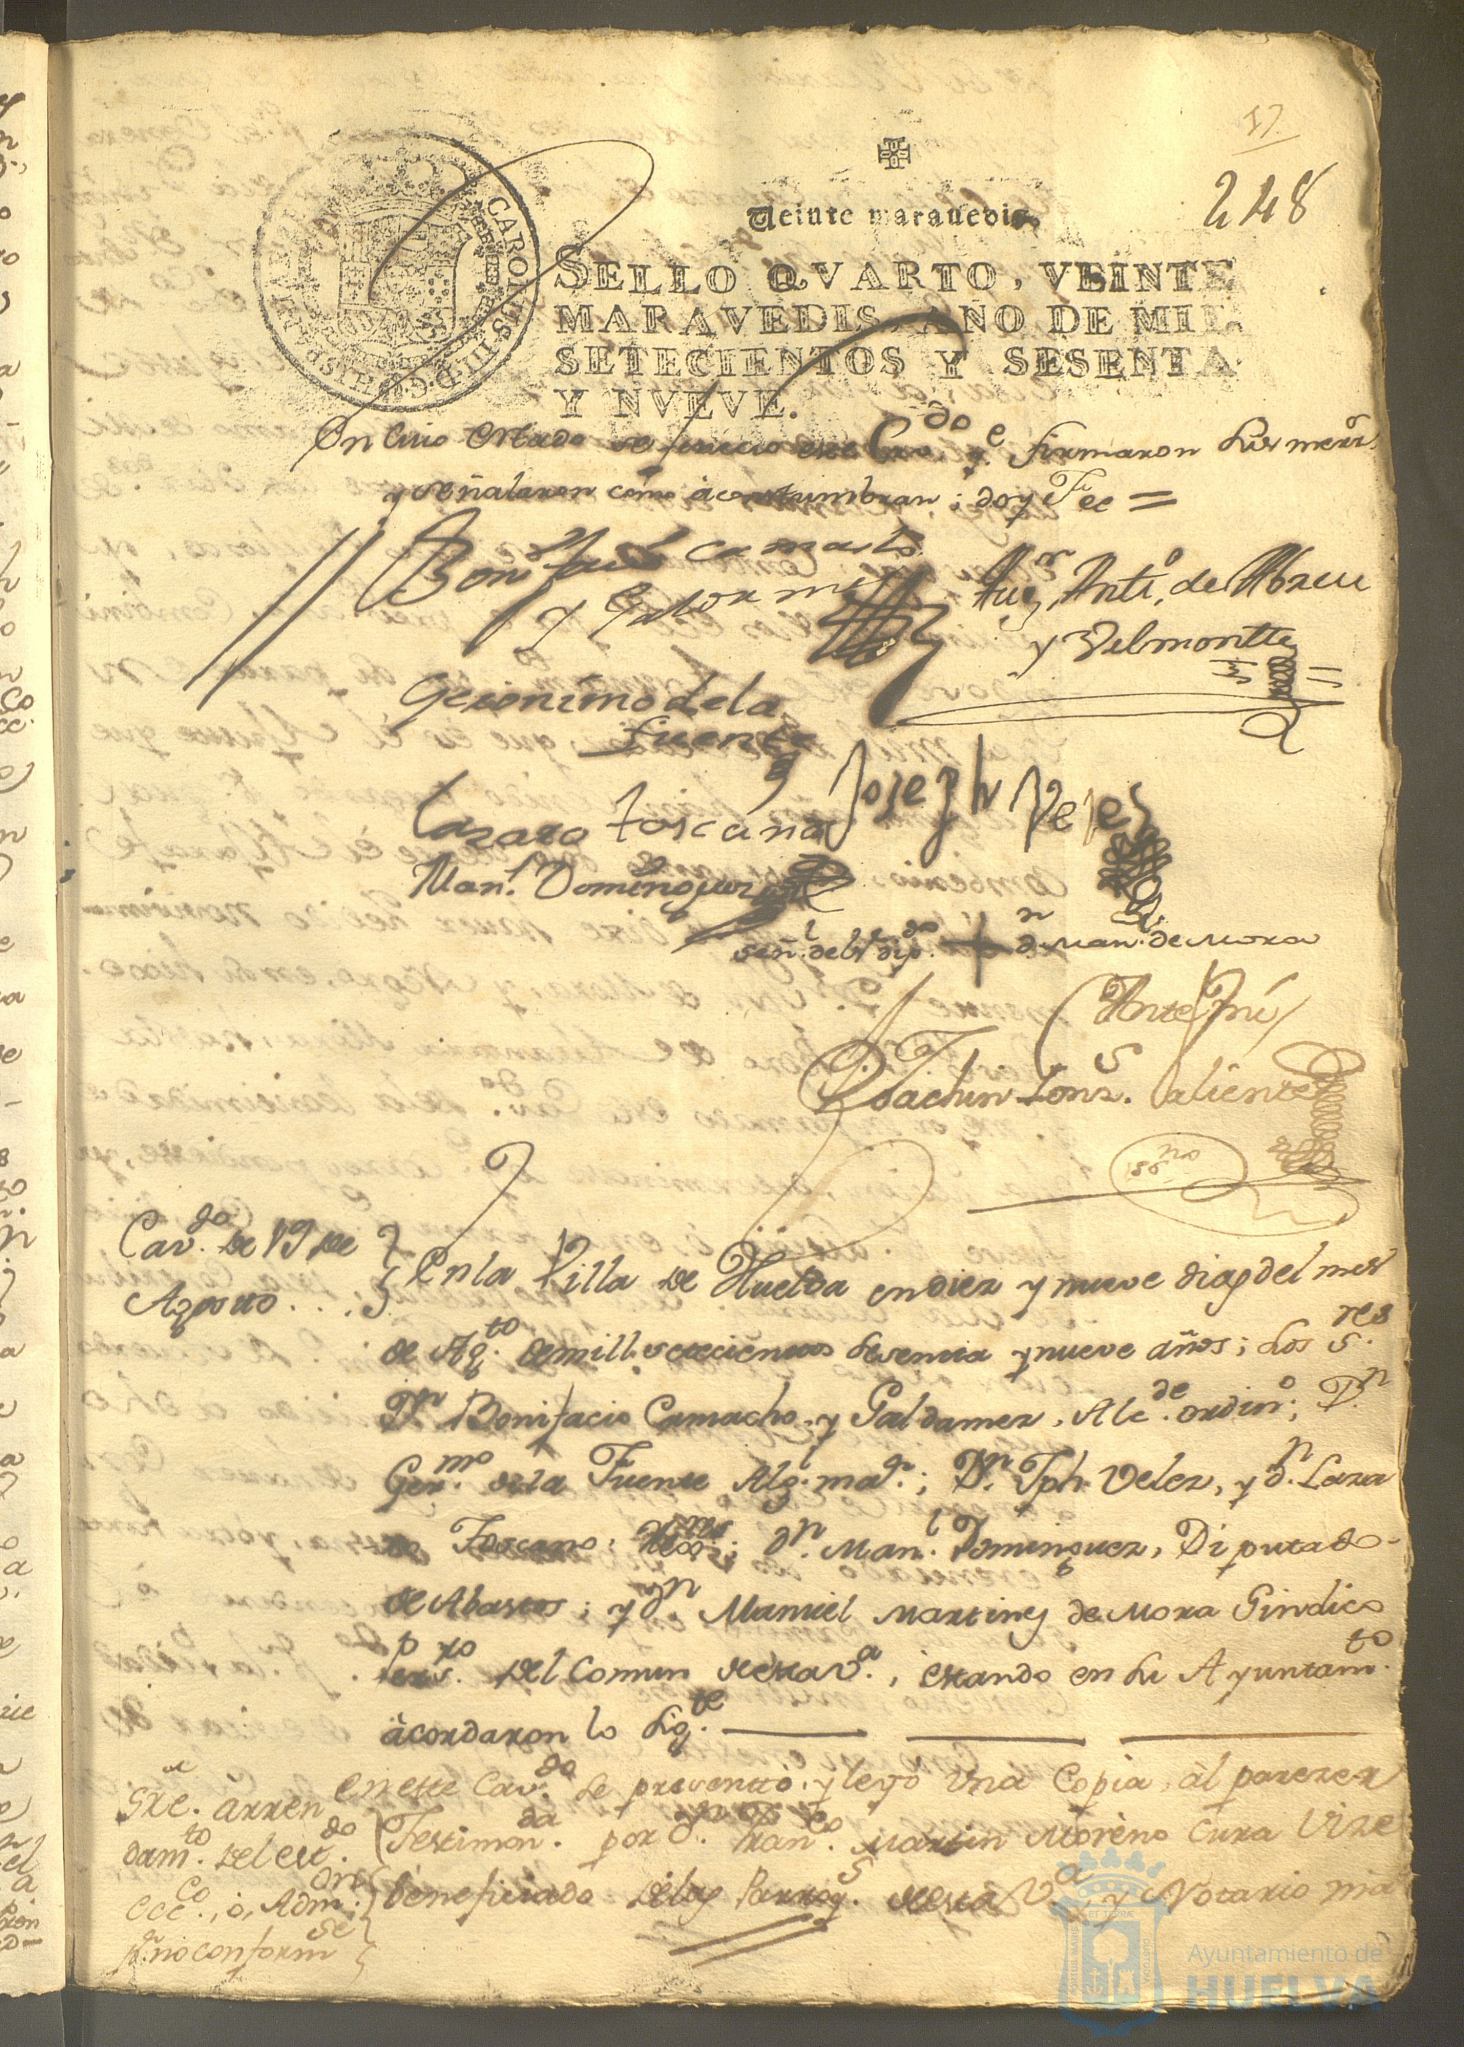 57
248
Veinte maravedis.
CAROLUS III D.G. HISPANIAR. REX
SELLO QVARTO, VEINTE
MARAVEDIS, AÑO DE MIL
SETECIENTOS Y SESENTA
Y NVEVE.
En cuio estado se feneció este Cavdo. qe. firmaron sus mers.
y señalaron como àcostumbran; doy Fee =
Bonifacio Camacho
y Galdamez
Augn. Anto. de Abreu
y Velmontte
Geronimo de la
Fuente
Joseph Velez
Lazaro toscano
Manl. Dominguez
señl. del dipdo. + dn. Man. de Mora
Ante Mi
Joachin Gonz. Valiente
esno
Cavdo. de 19 de
Agosto . . .
En la Villa de Huelva en diez y nueve dias del mes
de Agto. de mill setecientos sesenta y nueve años; los Sres.
Dn. Bonifacio Camacho y Galdamez, Alcde. ordino.; Dn.
Germo. de la Fuente Alg. mar.; Dn. Jph. Velez, y dn. Laza
ro Toscano; Rexres; dn. Manl. Dominguez, Diputado
de Abastos; y dn. Manuel Martinez de Mora Sindico
perso. del Comun de esta Va., estando en su Ayuntamto.
àcordaron lo sigte.
Sre. arren
damto. del estdo.
ecco., ò, Admon.
pr. no conformse
en este Cavdo. se presentó y leyó una Copia, al parezer
Testimonda. por dn. Franco. Martin Moreno Cura Vize
beneficiado de las Parroqs. de esta Va. y Notario ma
Ayuntamiento de
HUELVA